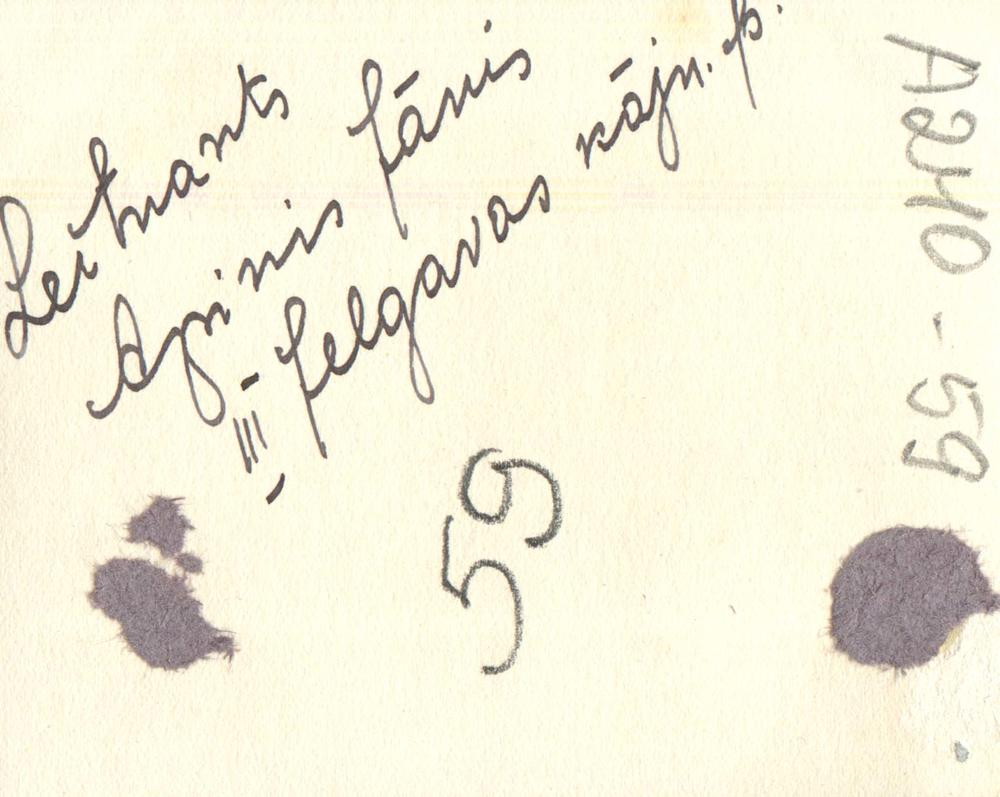 Leitnants
Apinis Jānis
III Jelgavas kājn. p.
59
A240-59